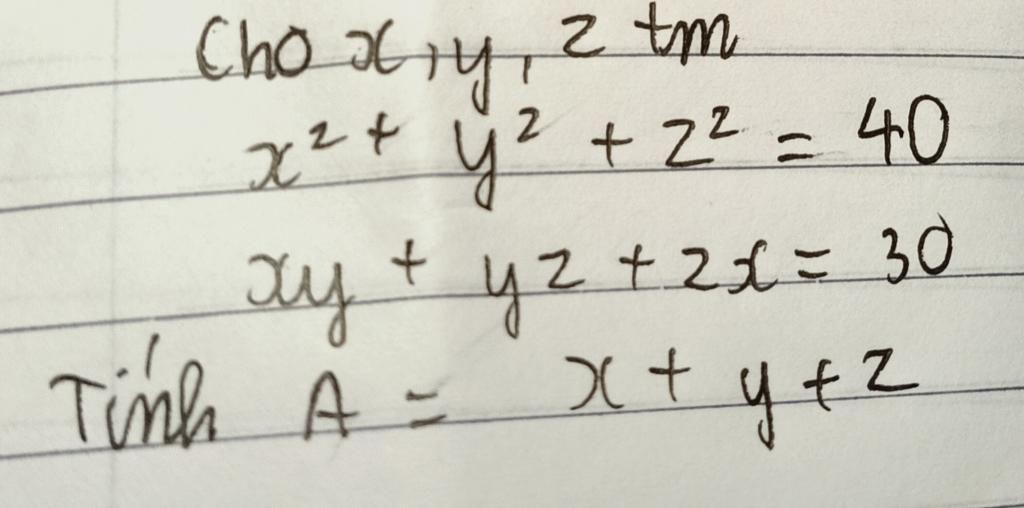 Cho x, y, z tm
x² + y² + z² = 40
xy + yz + zx = 30
Tính A = x + y + z